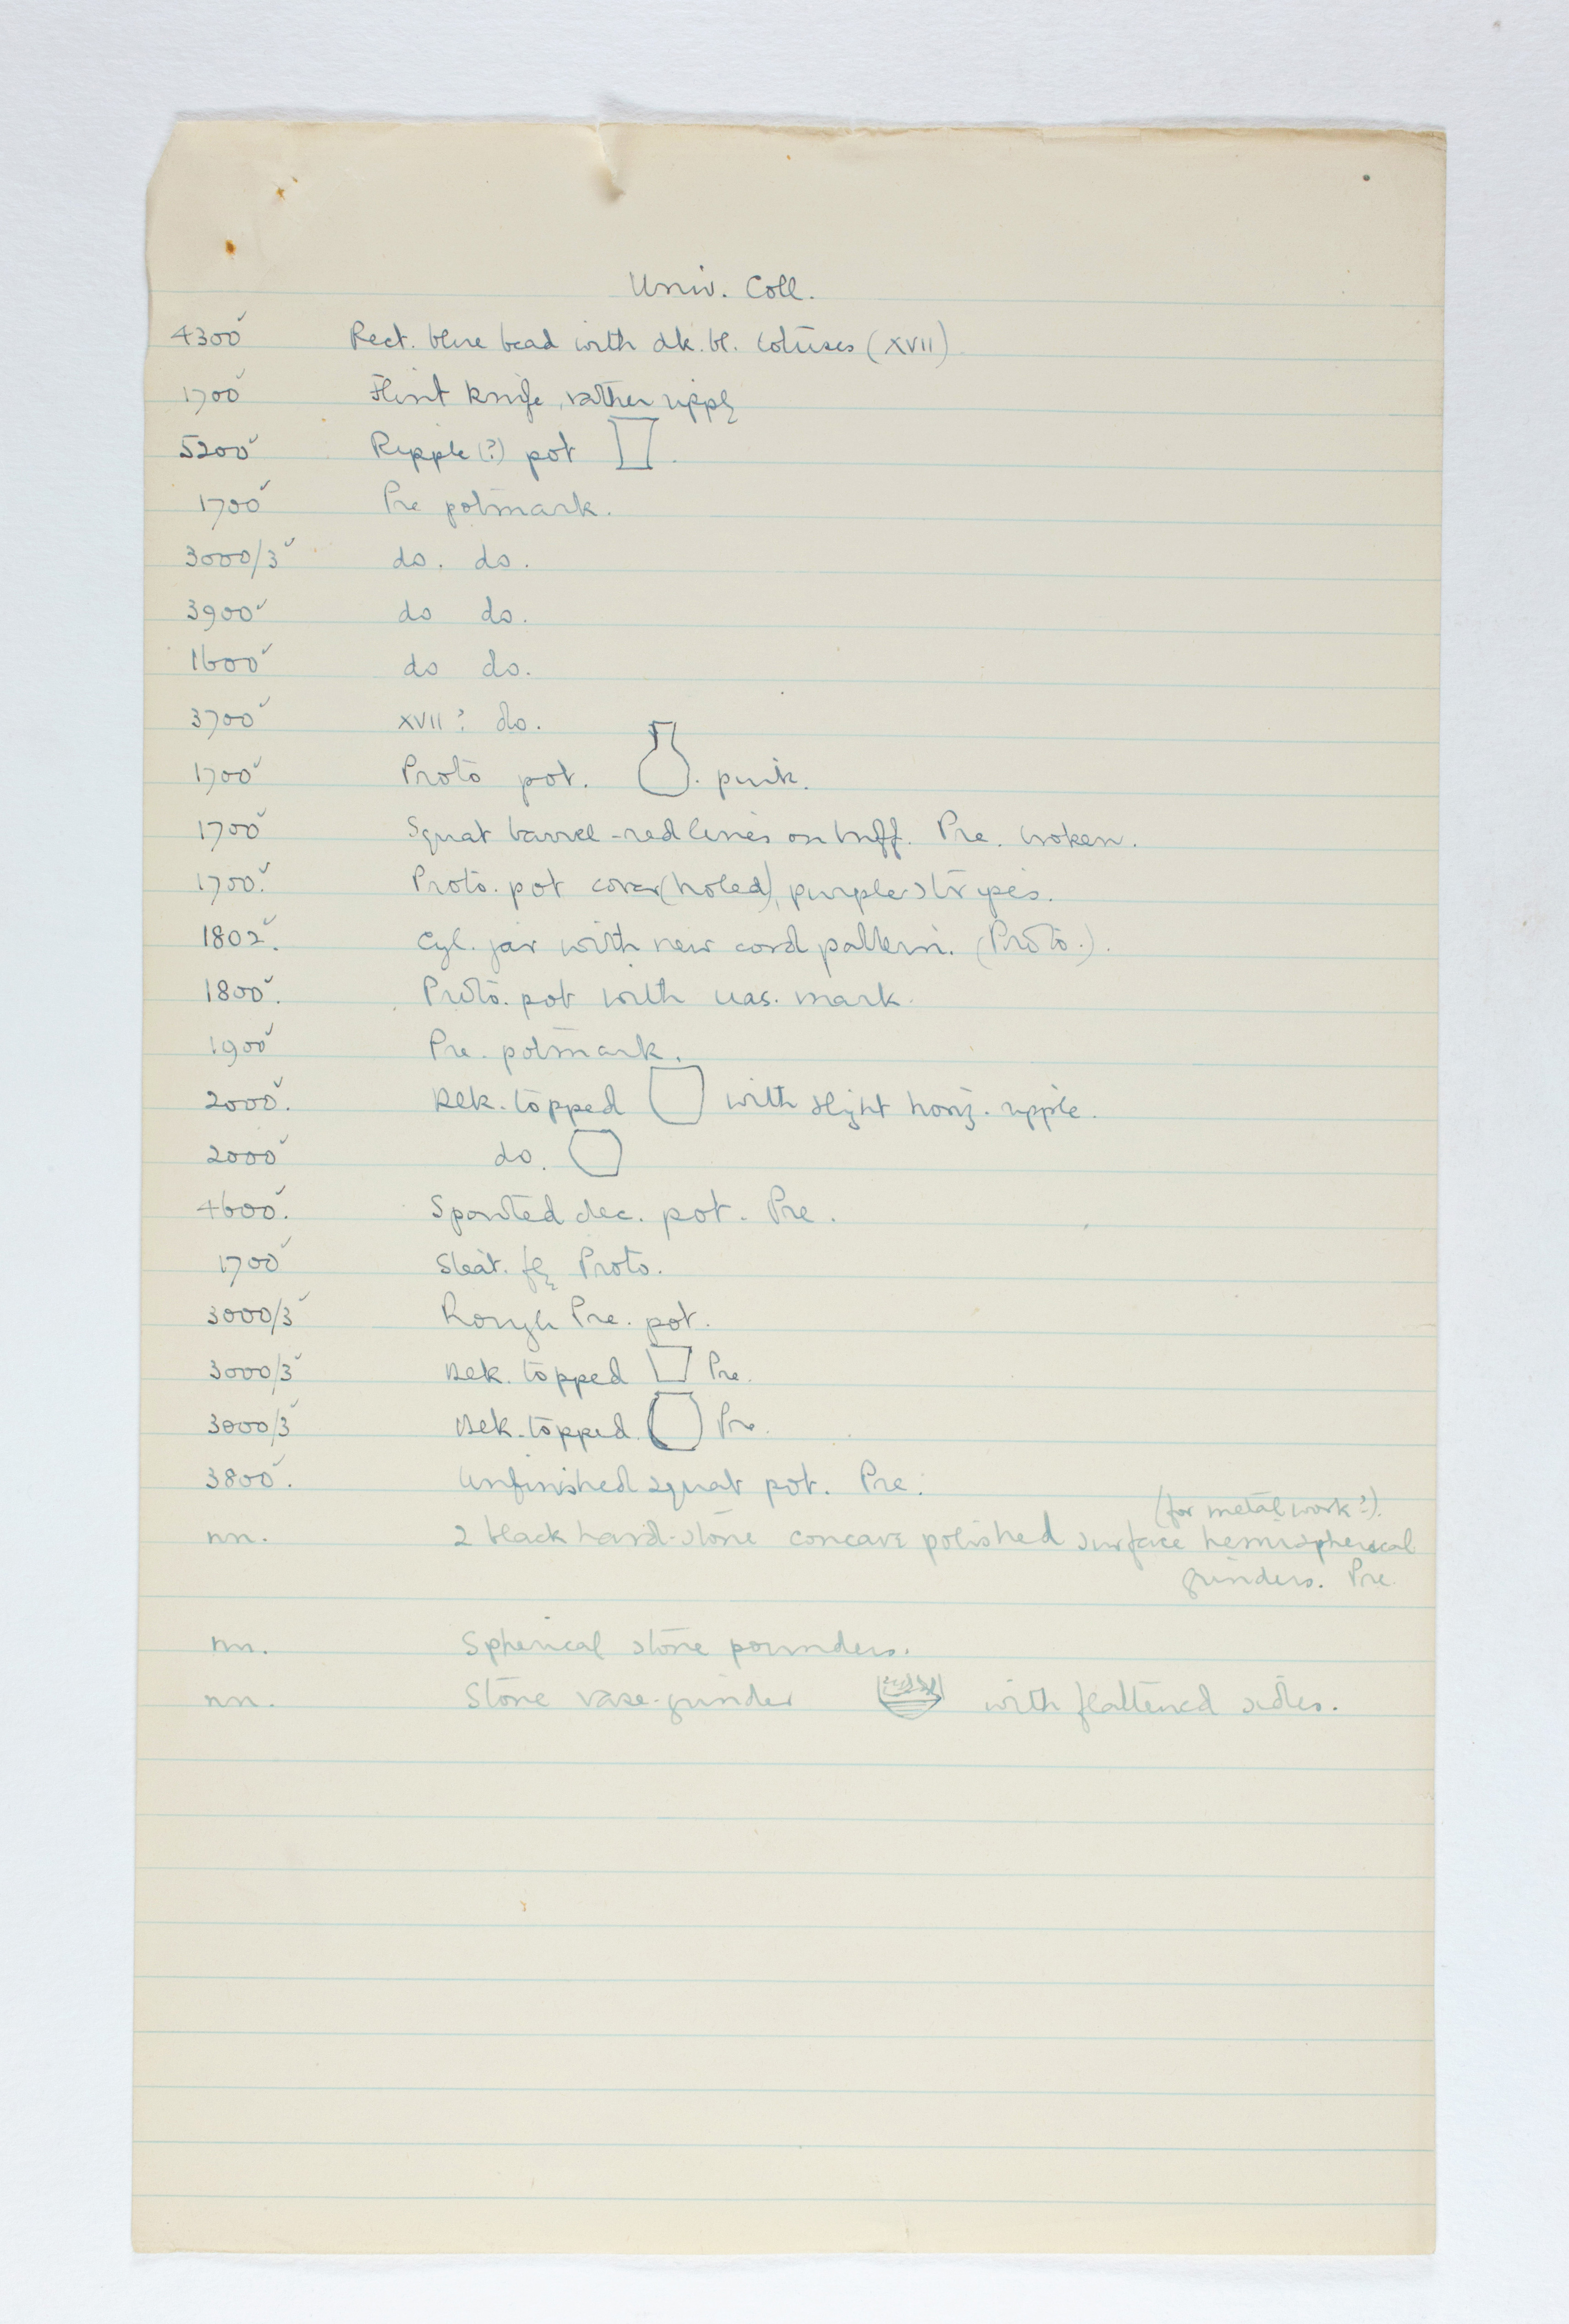 Univ. Coll.
4300✓ Rect. blue bead with dk. bl. lotuses (XVII)
1700✓ Flint knife, rather ripply
5200✓ Ripple (?) pot .
1700✓ Pre potmark.
3000/3✓ do. do.
3900✓ do do.
1600✓ do do.
3700✓ XVII? do.
1700✓ Proto pot. . pink.
1700✓ Squat barrel - red lines on buff. Pre. broken.
1700.✓ Proto. pot cover (holed), purple stripes.
1802.✓ Cyl. jar with new cord pattern. (Proto.).
1800.✓ Proto. pot with uas. mark.
1900✓ Pre. potmark.
2000.✓ Blk. topped with slight horiz. ripple.
2000✓ do.
4600.✓ Spouted dec. pot. Pre.
1700✓ Steat. Proto.
3000/3✓ Rough Pre. pot.
3000/3✓ Blk. topped Pre.
3000/3✓ Blk. topped. Pre.
3800.✓ Unfinished squat pot. Pre.
(for metal work?).
nn. 2 black hard-stone concave polished surface hemispherical
grinders. Pre.
nn. Spherical stone pounders.
nn. Stone vase-grinder with flattened sides.